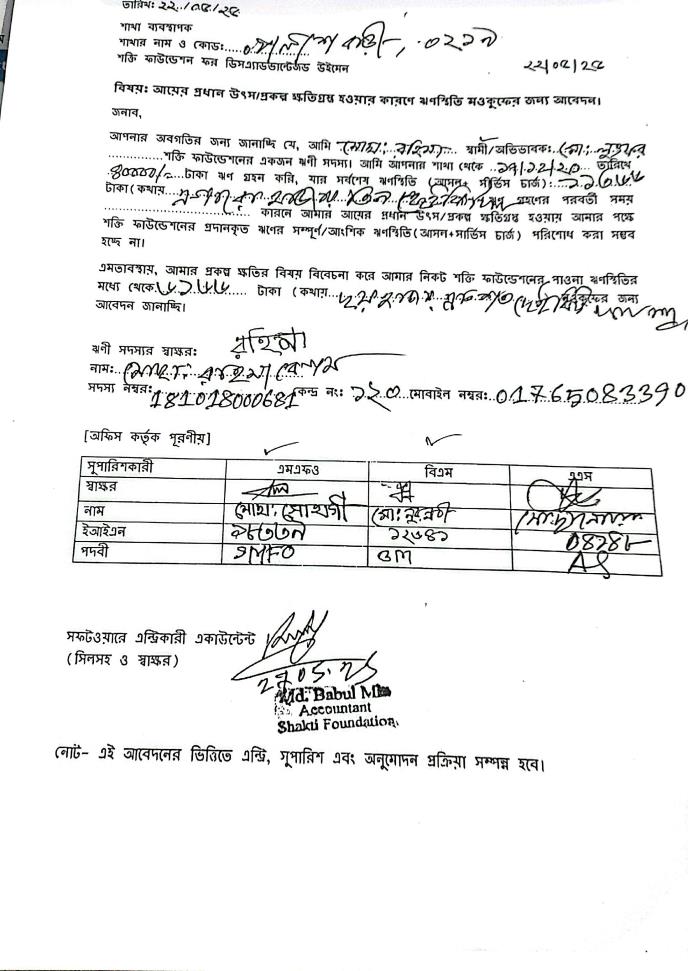 তারিখ: ২২/০৫/২৫
শাখা ব্যবস্থাপক
শাখার নাম ও কোড:
শক্তি ফাউন্ডেশন ফর ডিসএ্যাডভান্টেজড উইমেন
২২/০৫/২৫
বিষয়: আয়ের প্রধান উৎস/প্রকল্প ক্ষতিগ্রস্থ হওয়ার কারণে ঋণস্থিতি মওকুফের জন্য আবেদন।
জনাব,
আপনার অবগতির জন্য জানাচ্ছি যে, আমি মোছা: রহিমা স্বামী/অভিভাবক: মো:
শক্তি ফাউন্ডেশনের একজন ঋণী সদস্য। আমি আপনার শাখা থেকে তারিখে
৪০০০০/= টাকা ঋণ গ্রহন করি, যার সর্বশেষ ঋণস্থিতি (আসল+ সার্ভিস চার্জ):
টাকা (কথায় গ্রহণের পরবর্তী সময়
কারনে আমার আয়ের প্রধান উৎস/প্রকল্প ক্ষতিগ্রস্থ হওয়ায় আমার পক্ষে
শক্তি ফাউন্ডেশনের প্রদানকৃত ঋণের সম্পূর্ণ/আংশিক ঋণস্থিতি(আসল+সার্ভিস চার্জ) পরিশোধ করা সম্ভব
হচ্ছে না।
এমতাবস্থায়, আমার প্রকল্প ক্ষতির বিষয় বিবেচনা করে আমার নিকট শক্তি ফাউন্ডেশনের পাওনা ঋণস্থিতির
মধ্যে থেকে টাকা (কথায় মওকুফের জন্য
আবেদন জানাচ্ছি।
ঋণী সদস্যর স্বাক্ষর: রহিমা
নাম: মোছা: রহিমা বেগম
সদস্য নম্বর: 181018000681 কেন্দ্র নং: ১২০ মোবাইল নম্বর: 01765083390
[অফিস কর্তৃক পূরণীয়]
সুপারিশকারী এমএফও বিএম এএস
স্বাক্ষর
নাম মো: নুরনবী
ইআইএন 08285
পদবী SMFO BM AS
সফটওয়ারে এন্ট্রিকারী একাউন্টেন্ট
(সিলসহ ও স্বাক্ষর)
27.05.25
Md. Babul Mia
Accountant
Shakti Foundation.
নোট- এই আবেদনের ভিত্তিতে এন্ট্রি, সুপারিশ এবং অনুমোদন প্রক্রিয়া সম্পন্ন হবে।